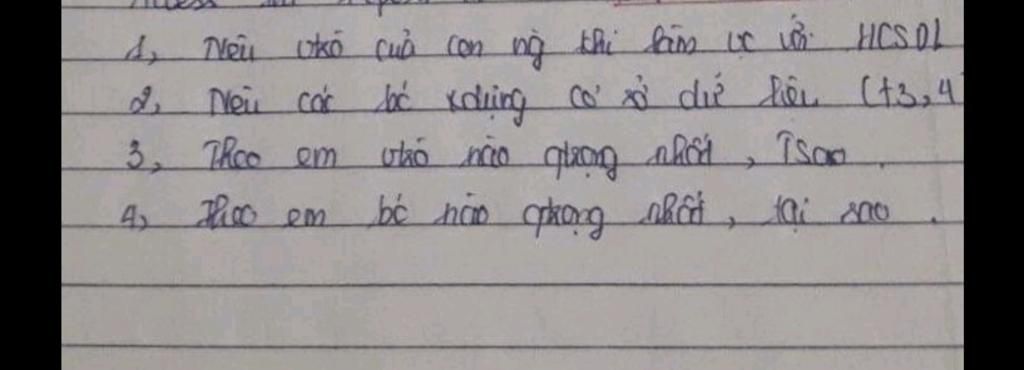 1, Nêu vtrò của con ng khi làm vc với HCSDL
2, Nêu các bc xdựng cơ sở dữ liệu (t3,4
3, Theo em vtrò nào qtrọng nhất, Tsao.
4, Theo em bc nào qtrọng nhất, tại sao.